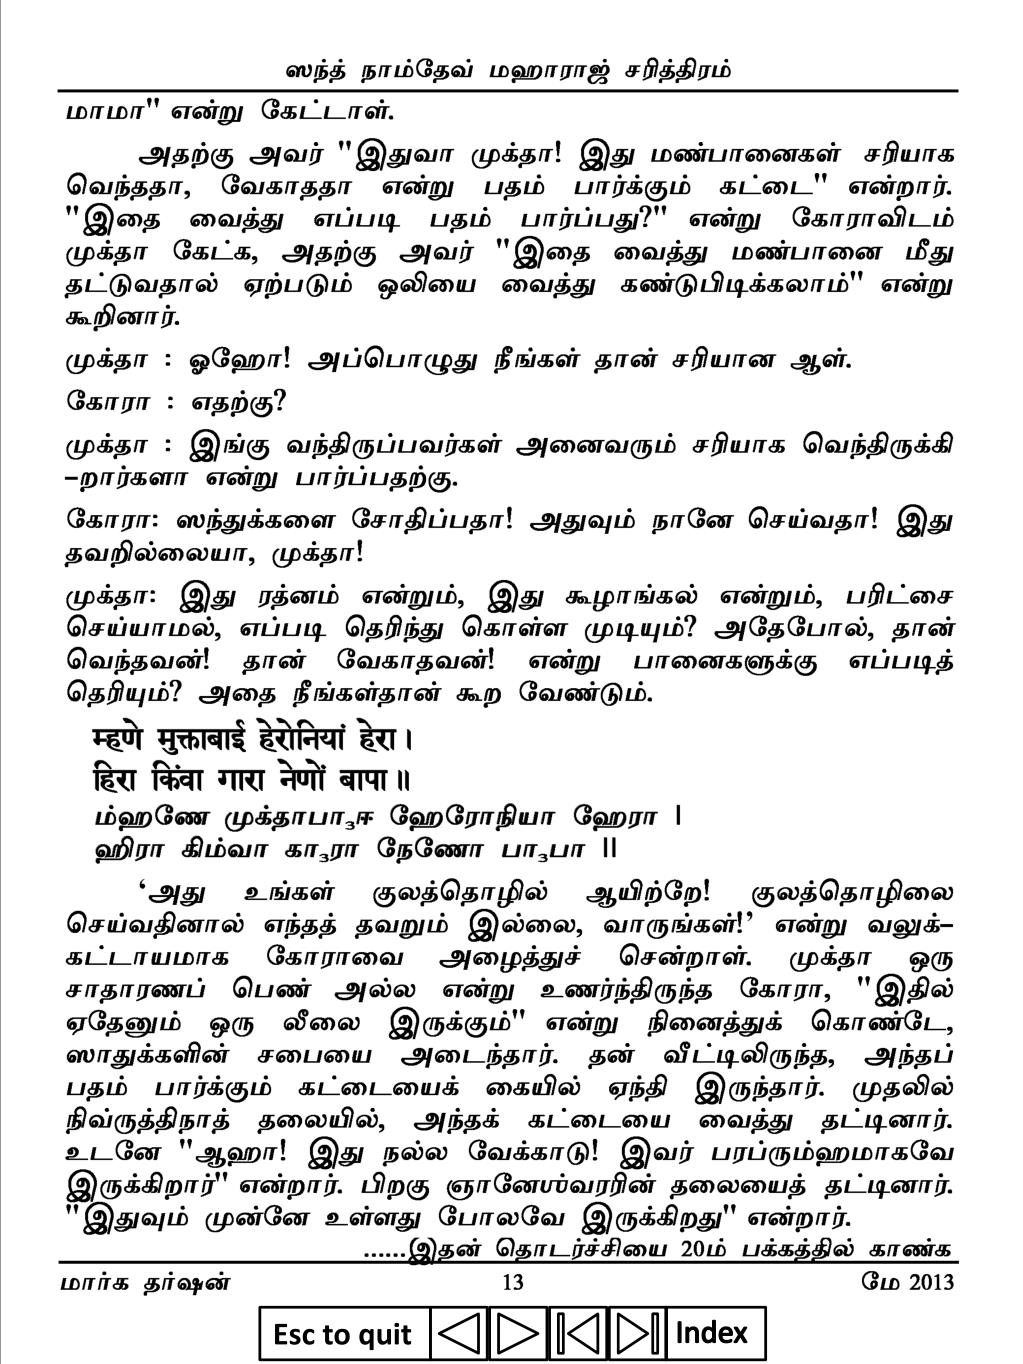 ஸந்த் நாம்தேவ் மஹாராஜ் சரித்திரம்
மாமா" என்று கேட்டாள்.
அதற்கு அவர் "இதுவா முக்தா! இது மண்பானைகள் சரியாக
வெந்ததா, வேகாததா என்று பதம் பார்க்கும் கட்டை" என்றார்.
"இதை வைத்து எப்படி பதம் பார்ப்பது?" என்று கோராவிடம்
முக்தா கேட்க, அதற்கு அவர் "இதை வைத்து மண்பானை மீது
தட்டுவதால் ஏற்படும் ஒலியை வைத்து கண்டுபிடிக்கலாம்" என்று
கூறினார்.
முக்தா : ஓஹோ! அப்பொழுது நீங்கள் தான் சரியான ஆள்.
கோரா : எதற்கு?
முக்தா : இங்கு வந்திருப்பவர்கள் அனைவரும் சரியாக வெந்திருக்கி
–றார்களா என்று பார்ப்பதற்கு.
கோரா: ஸந்துக்களை சோதிப்பதா! அதுவும் நானே செய்வதா! இது
தவறில்லையா, முக்தா!
முக்தா: இது ரத்னம் என்றும், இது கூழாங்கல் என்றும், பரிட்சை
செய்யாமல், எப்படி தெரிந்து கொள்ள முடியும்? அதேபோல், தான்
வெந்தவன்! தான் வேகாதவன்! என்று பானைகளுக்கு எப்படித்
தெரியும்? அதை நீங்கள்தான் கூற வேண்டும்.
म्हणे मुक्ताबाई हेरोनियां हेरा।
हिरा किंवा गारा नेणों बापा॥
ம்ஹணே முக்தாபா₃ஈ ஹேரோநியா ஹேரா |
ஹிரா கிம்வா கா₃ரா நேணோ பா₃பா ||
‘அது உங்கள் குலத்தொழில் ஆயிற்றே! குலத்தொழிலை
செய்வதினால் எந்தத் தவறும் இல்லை, வாருங்கள்!’ என்று வலுக்–
கட்டாயமாக கோராவை அழைத்துச் சென்றாள். முக்தா ஒரு
சாதாரணப் பெண் அல்ல என்று உணர்ந்திருந்த கோரா, "இதில்
ஏதேனும் ஒரு லீலை இருக்கும்" என்று நினைத்துக் கொண்டே,
ஸாதுக்களின் சபையை அடைந்தார். தன் வீட்டிலிருந்த, அந்தப்
பதம் பார்க்கும் கட்டையைக் கையில் ஏந்தி இருந்தார். முதலில்
நிவ்ருத்திநாத் தலையில், அந்தக் கட்டையை வைத்து தட்டினார்.
உடனே "ஆஹா! இது நல்ல வேக்காடு! இவர் பரப்ரும்ஹமாகவே
இருக்கிறார்" என்றார். பிறகு ஞானேஶ்வரரின் தலையைத் தட்டினார்.
"இதுவும் முன்னே உள்ளது போலவே இருக்கிறது" என்றார்.
......இதன் தொடர்ச்சியை 20ம் பக்கத்தில் காண்க
மார்க தர்ஷன் 13 மே 2013
Esc to quit Index